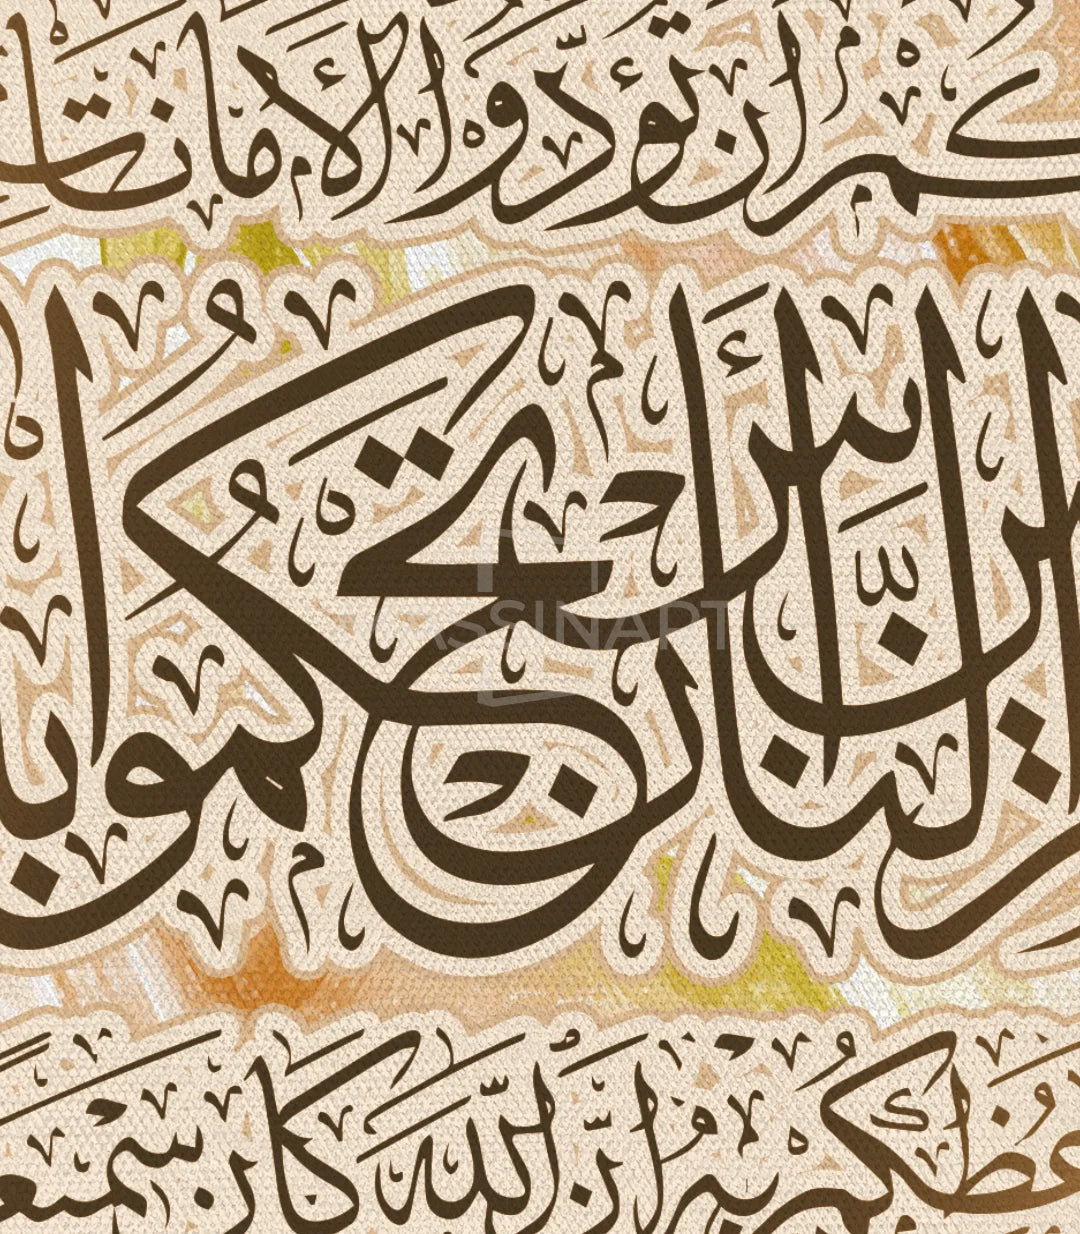 كم أن تؤدوا الأمانات
بين الناس أن تحكموا با
عظكم به إن الله كان سميع
ASSINART